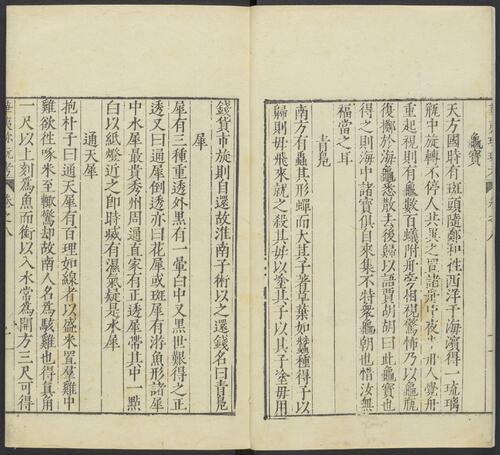 龜寶
天方國時有斑頭隨鄭和往西洋于海濱得一琉璃
瓶中旋轉不停人共異之置諸舟中夜半舟人覺舟
重起視則有龜數百蟻附舟旁相視驚怖乃以龜瓶
復擲於海龜悉散去後歸以語賈胡胡曰此龜寶也
得之則海中諸寶俱自來集不特衆龜朝也惜汝無
福當之耳
青凫
南方有蟲其形蟬而大其子著草葉如蠶種得子以
歸則母飛來就之殺其母以塗其子以其子塗母用
錢貨市旋則自還故淮南子術以之還錢名曰青凫
犀
犀有三種重透外黑有一暈白中又黑世艱得之正
透又曰通犀倒透亦曰花犀或斑犀有游魚形諸犀
中水犀最貴秀州周通直家有正透犀帶其中一點
白以紙燈近之卽時蔵有濕氣疑是水犀
通天犀
抱朴子曰通天犀有百理如綫者以盛米置羣雞中
雞欲徃啄米至輙驚却故南人名爲駭雞也得眞角
一尺以上刻爲魚而銜以入水常爲開方三尺可得
卷之八